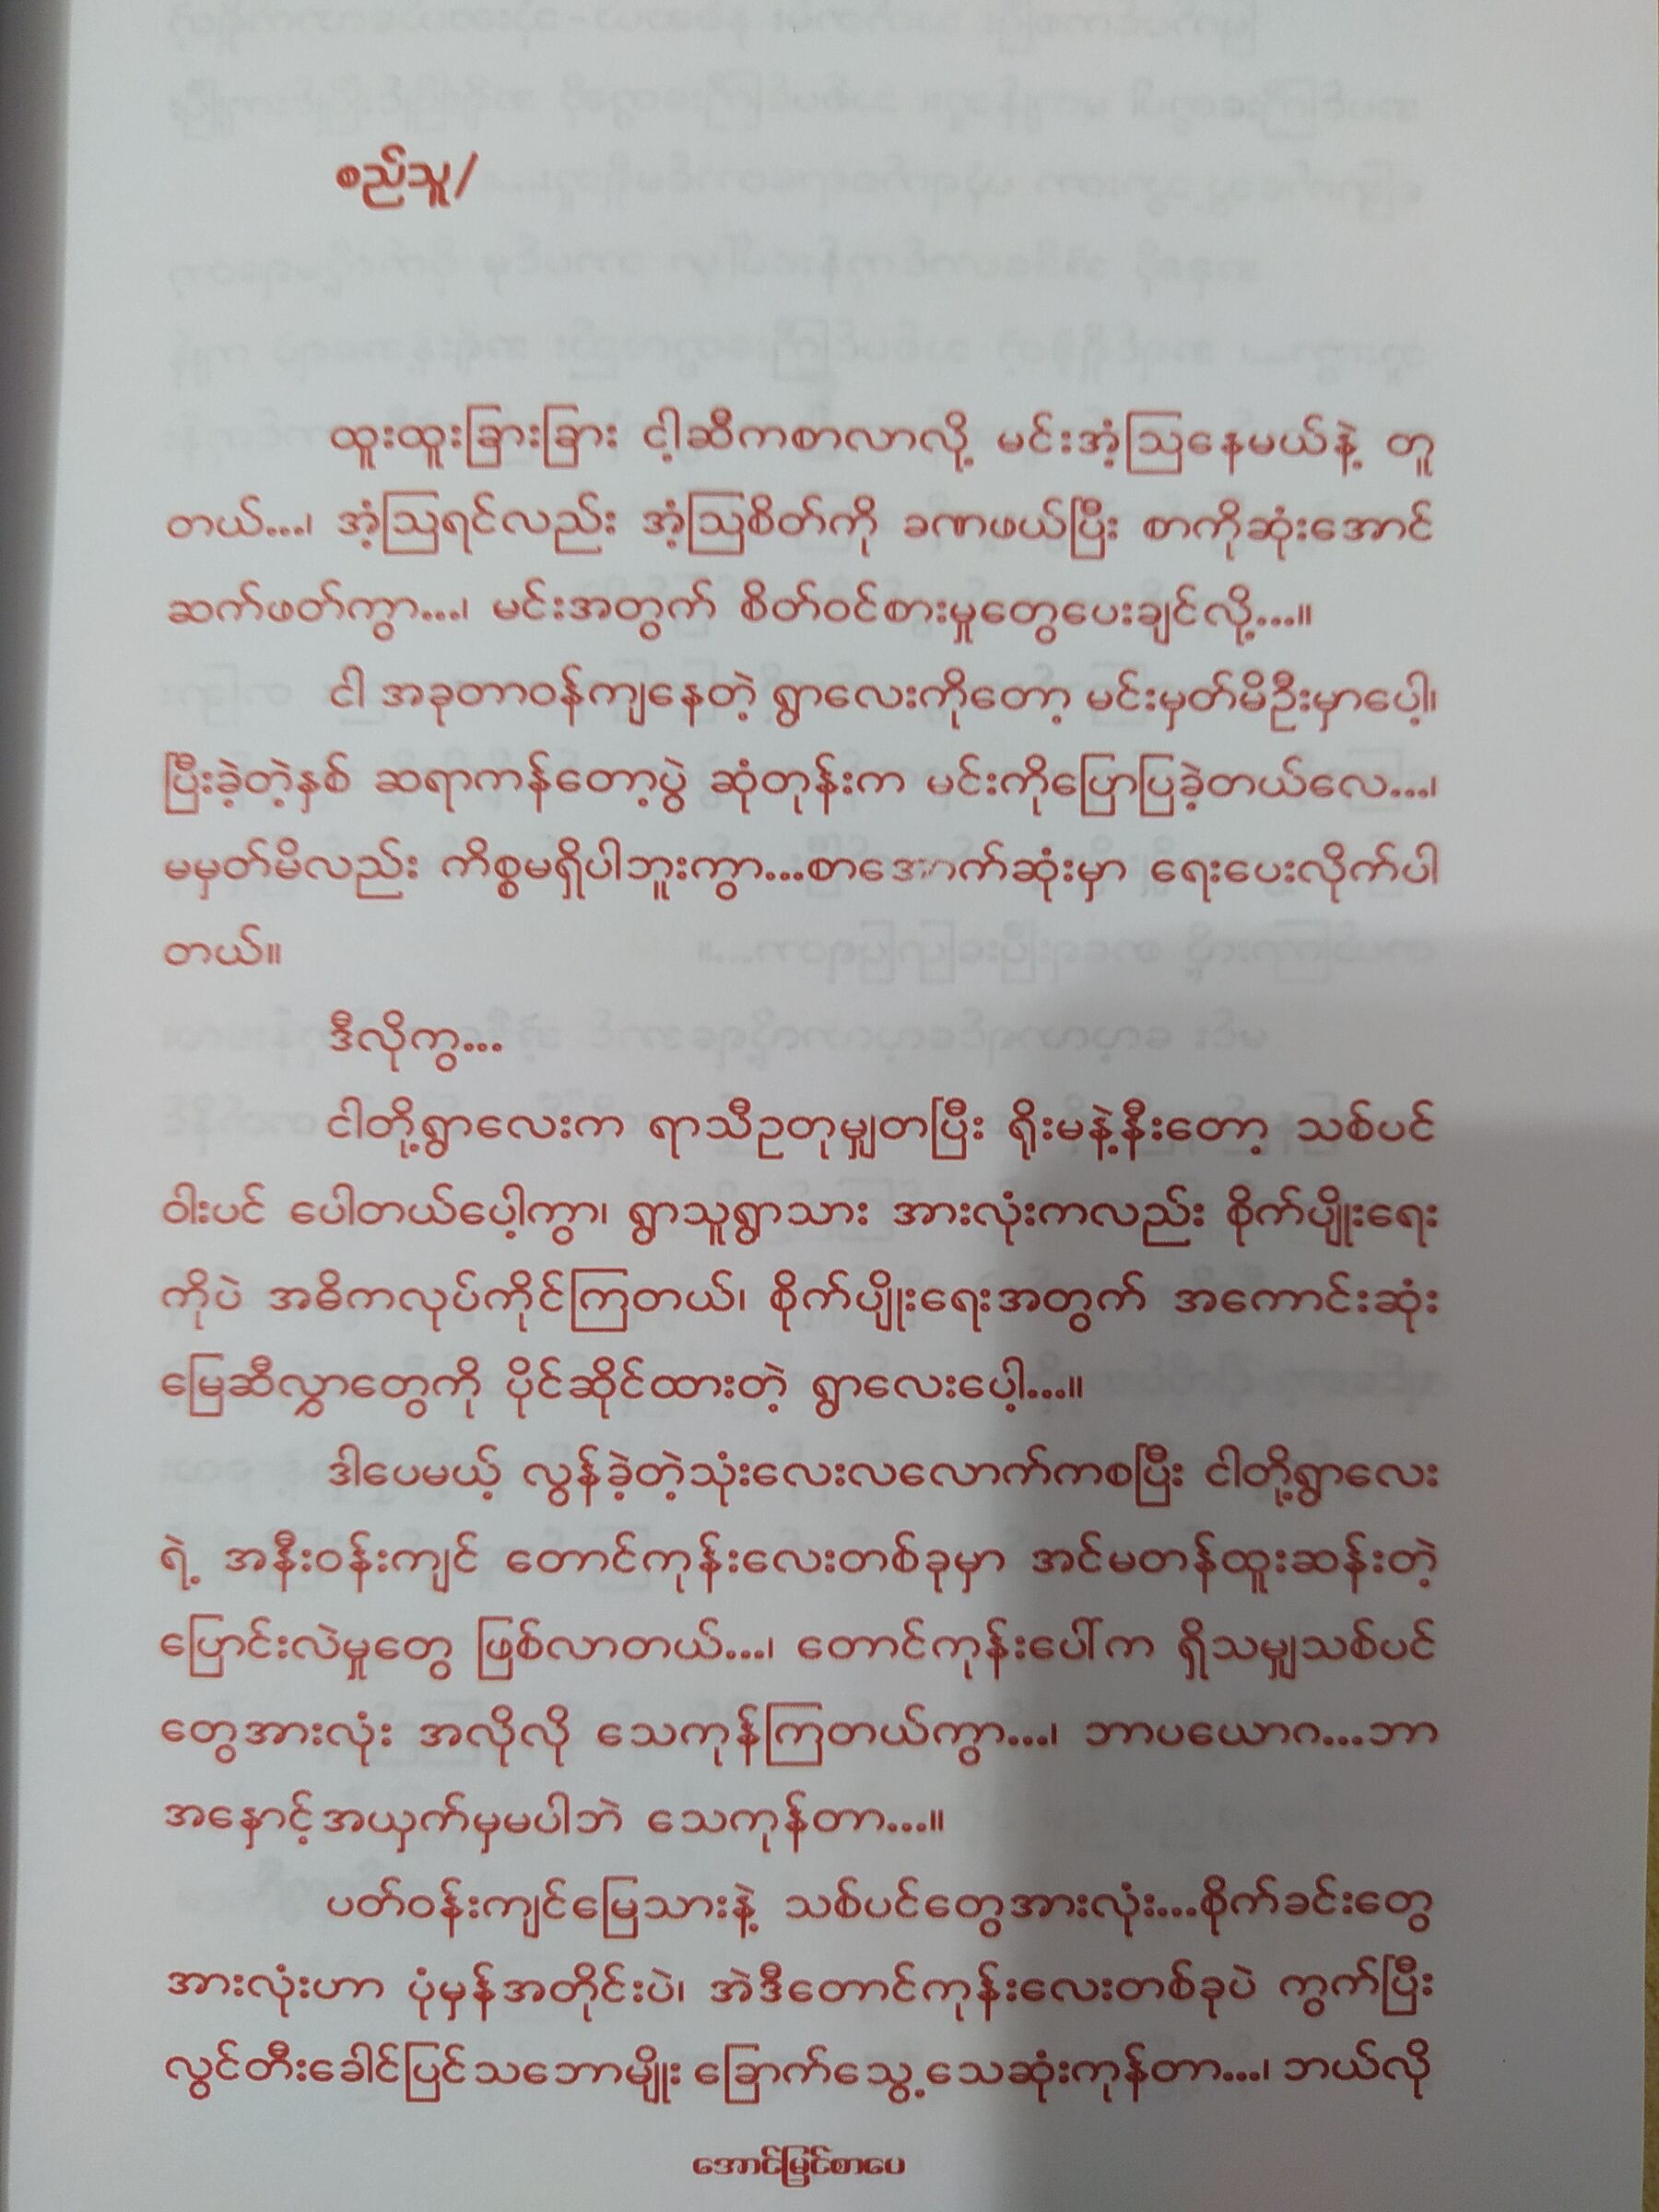 စည်သူ/
ထူးထူးခြားခြား ငါ့ဆီကစာလာလို့ မင်းအံ့ဩနေမယ်နဲ့ တူ
တယ်...၊ အံ့ဩရင်လည်း အံ့ဩစိတ်ကို ခဏဖယ်ပြီး စာကိုဆုံးအောင်
ဆက်ဖတ်ကွာ...၊ မင်းအတွက် စိတ်ဝင်စားမှုတွေပေးချင်လို့...။
ငါ အခုတာဝန်ကျနေတဲ့ ရွာလေးကိုတော့ မင်းမှတ်မိဦးမှာပေါ့၊
ပြီးခဲ့တဲ့နှစ် ဆရာကန်တော့ပွဲ ဆုံတုန်းက မင်းကိုပြောပြခဲ့တယ်လေ...၊
မမှတ်မိလည်း ကိစ္စမရှိပါဘူးကွာ...စာအောက်ဆုံးမှာ ရေးပေးလိုက်ပါ
တယ်။
ဒီလိုကွ...
ငါတို့ရွာလေးက ရာသီဥတုမျှတပြီး ရိုးမနဲ့နီးတော့ သစ်ပင်
ဝါးပင် ပေါတယ်ပေါ့ကွာ၊ ရွာသူရွာသား အားလုံးကလည်း စိုက်ပျိုးရေး
ကိုပဲ အဓိကလုပ်ကိုင်ကြတယ်၊ စိုက်ပျိုးရေးအတွက် အကောင်းဆုံး
မြေဆီလွှာတွေကို ပိုင်ဆိုင်ထားတဲ့ ရွာလေးပေါ့...။
ဒါပေမယ့် လွန်ခဲ့တဲ့သုံးလေးလလောက်ကစပြီး ငါတို့ရွာလေး
ရဲ့ အနီးဝန်းကျင် တောင်ကုန်းလေးတစ်ခုမှာ အင်မတန်ထူးဆန်းတဲ့
ပြောင်းလဲမှုတွေ ဖြစ်လာတယ်...၊ တောင်ကုန်းပေါ်က ရှိသမျှသစ်ပင်
တွေအားလုံး အလိုလို သေကုန်ကြတယ်ကွာ...၊ ဘာပယောဂ...ဘာ
အနှောင့်အယှက်မှမပါဘဲ သေကုန်တာ...။
ပတ်ဝန်းကျင်မြေသားနဲ့ သစ်ပင်တွေအားလုံး...စိုက်ခင်းတွေ
အားလုံးဟာ ပုံမှန်အတိုင်းပဲ၊ အဲဒီတောင်ကုန်းလေးတစ်ခုပဲ ကွက်ပြီး
လွင်တီးခေါင်ပြင်သဘောမျိုး ခြောက်သွေ့သေဆုံးကုန်တာ...၊ ဘယ်လို
အောင်မြင်စာပေ